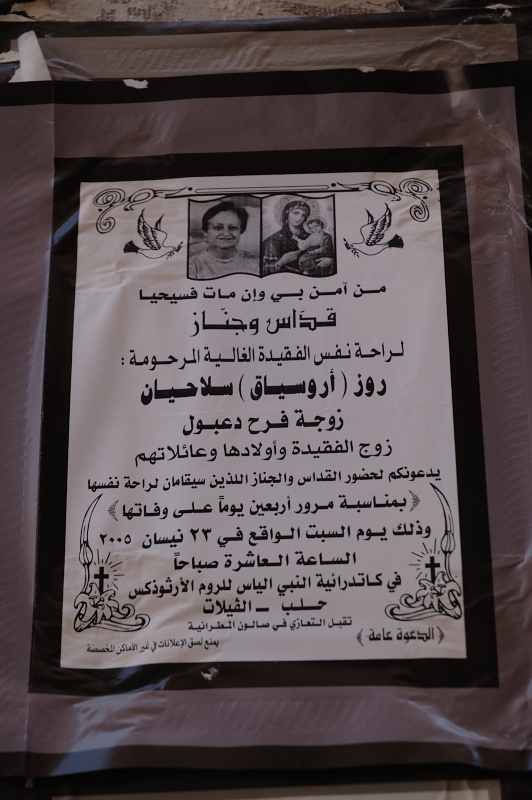 من آمن بي وإن مات فسيحيا
قدّاس وجنّاز
لراحة نفس الفقيدة الغالية المرحومة :
روز ( أروسياق ) سلاحيان
زوجة فرح دعبول
زوج الفقيدة وأولادها وعائلاتهم
يدعونكم لحضور القداس والجناز اللذين سيقامان لراحة نفسها
﴿ بمناسبة مرور أربعين يوماً على وفاتها ﴾
وذلك يوم السبت الواقع في ٢٣ نيسان ٢٠٠٥
الساعة العاشرة صباحاً
في كاتدرائية النبي الياس للروم الأرثوذكس
حلب - الفيلات
تقبل التعازي في صالون المطرانية
﴿ الدعوة عامة ﴾
يمنع لصق الإعلانات في غير الأماكن المخصصة